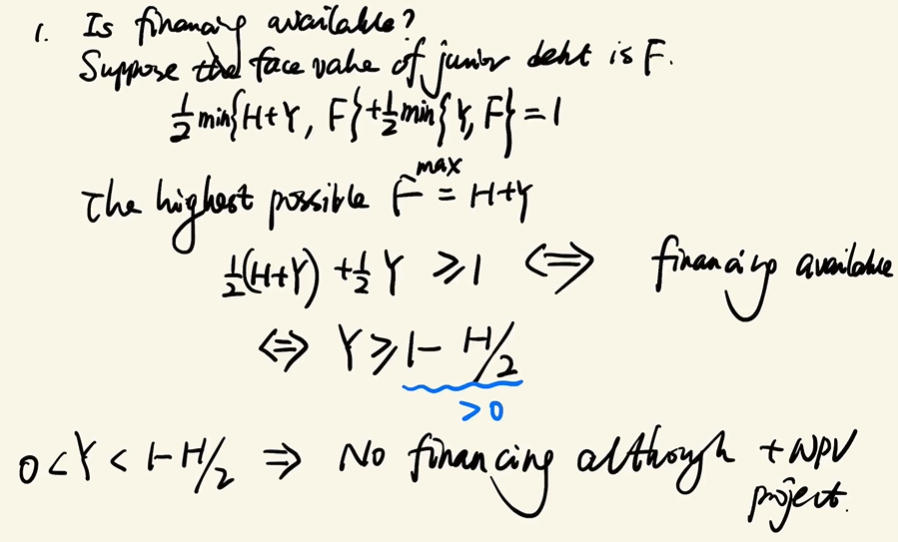 1. Is financing available?
Suppose the face value of junior debt is F.
½ min{H+Y, F} + ½ min{Y, F} = 1
The highest possible F^max = H+Y
½(H+Y) + ½ Y ⩾ 1 ⟺ financing available
⟺ Y ⩾ 1 - H/2
> 0
0 < Y < 1 - H/2 ⇒ No financing although + NPV
project.